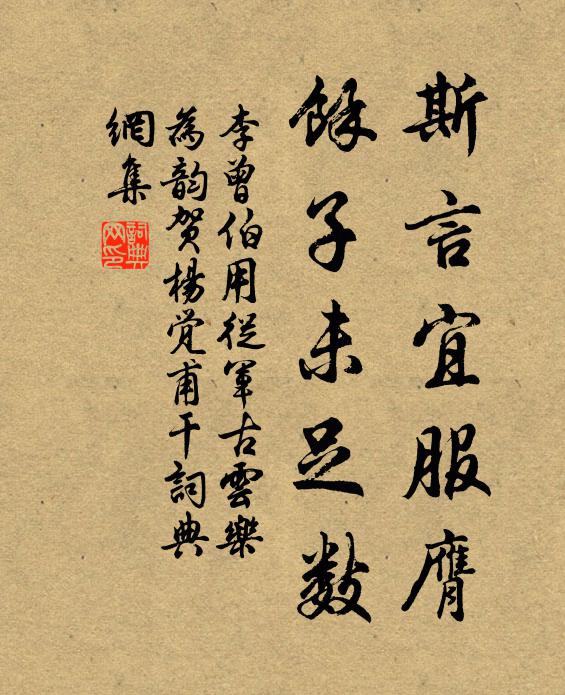 斯言宜服膺
餘子未足数
李曾伯用從軍古雲樂
為韵贺楊觉甫干詞典
網集
詞典
网印